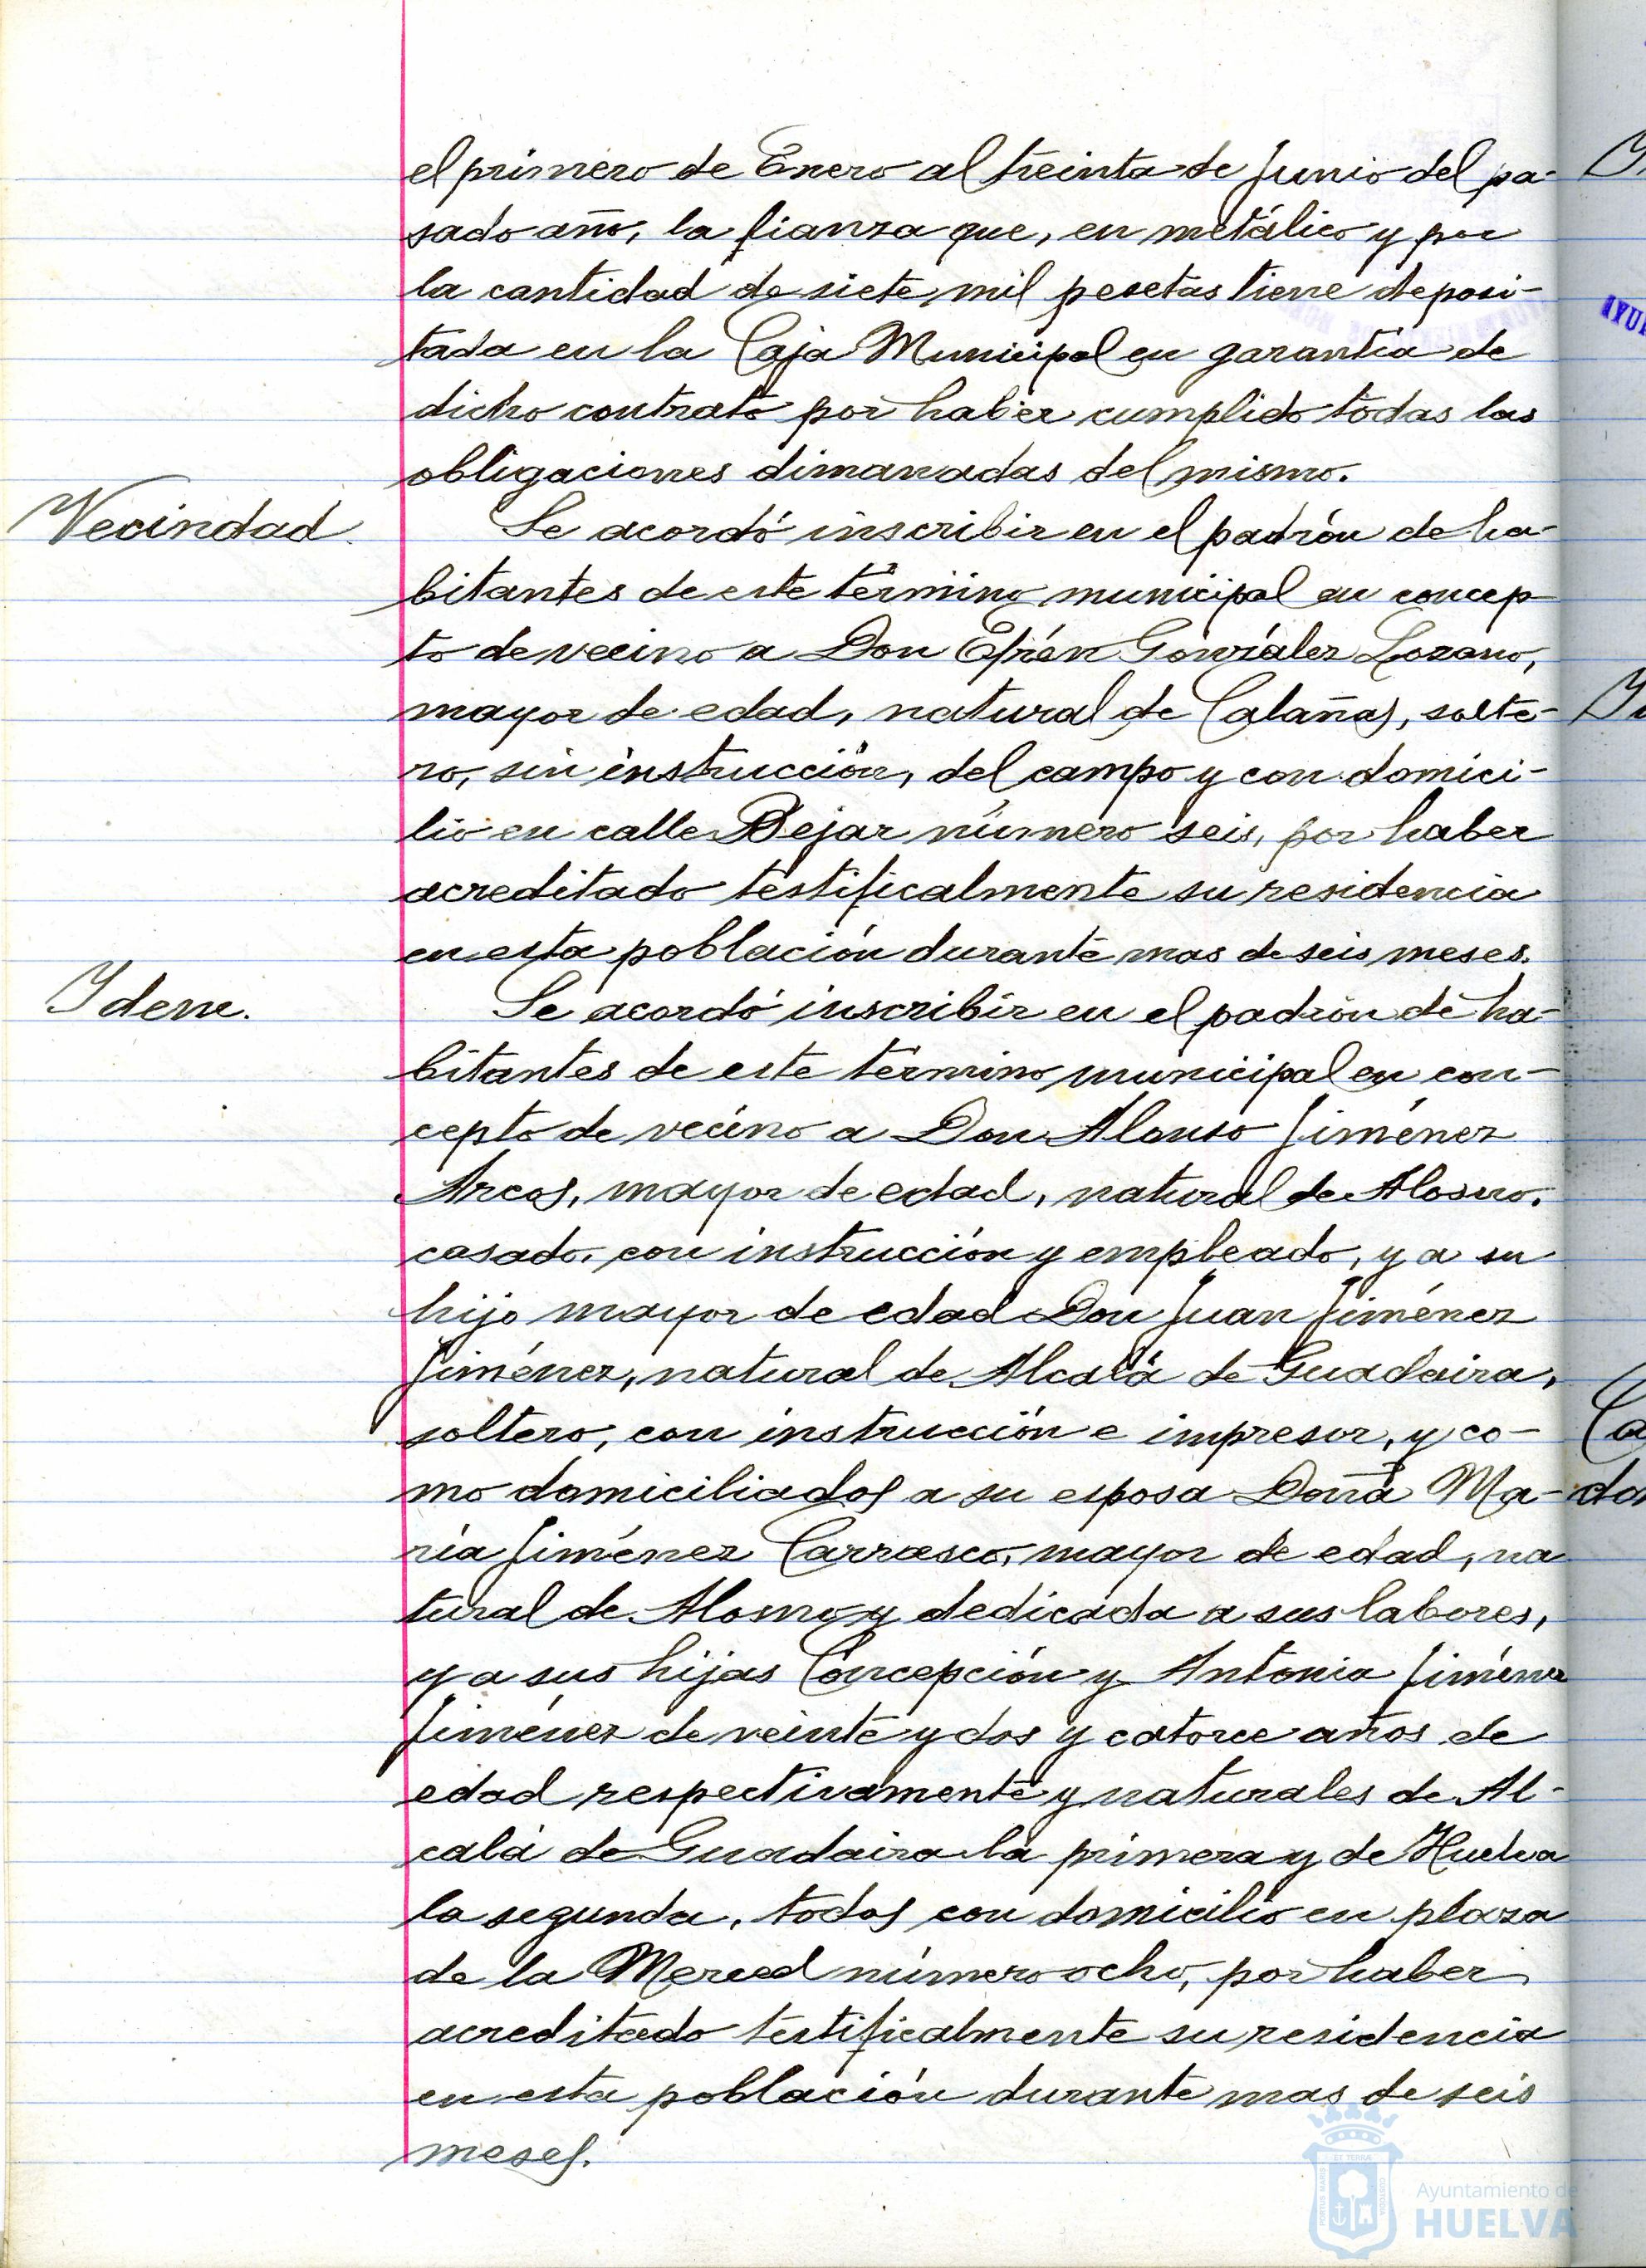 el primero de Enero al treinta de Junio del pa-
sado año, la fianza que, en metálico y por
la cantidad de siete mil pesetas tiene deposi-
tada en la Caja Municipal en garantía de
dicho contrato por haber cumplido todas las
obligaciones dimanadas del mismo.
Vecindad.
Se acordó inscribir en el padrón de ha-
bitantes de este término municipal en concep-
to de vecino a Don Efrén González Lozano,
mayor de edad, natural de Calañas, solte-
ro, sin instrucción, del campo y con domici-
lio en calle Bejar número seis, por haber
acreditado testificalmente su residencia
en esta población durante mas de seis meses.
Idem.
Se acordó inscribir en el padrón de ha-
bitantes de este término municipal en con-
cepto de vecino a Don Alonso Jiménez
Arcos, mayor de edad, natural de Alosno,
casado, con instrucción y empleado, y a su
hijo mayor de edad Don Juan Jiménez
Jiménez, natural de Alcalá de Guadaira,
soltero, con instrucción e impresor, y co-
mo domiciliados a su esposa Doña Ma-
ría Jiménez Carrasco, mayor de edad, na
tural de Alosno y dedicada a sus labores,
y a sus hijas Concepción y Antonia Jiménez
Jiménez de veinte y dos y catorce años de
edad respectivamente y naturales de Al-
calá de Guadaira la primera y de Huelva
la segunda, todos con domicilio en plaza
de la Merced número ocho, por haber
acreditado testificalmente su residencia
en esta población durante mas de seis
meses.
Ayuntamiento de
HUELVA